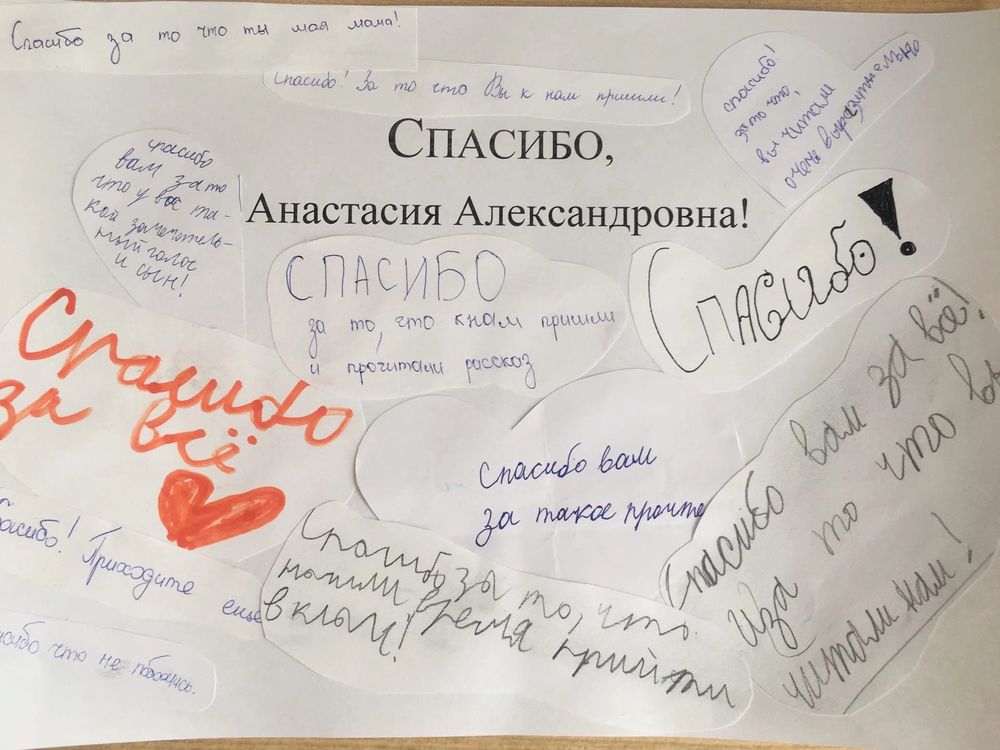 Спасибо за то что ты моя мама!
Спасибо! За то что Вы к нам пришли!
спасибо!
за то что,
вы читали
очень выразительно
СПАСИБО,
Анастасия Александровна!
спасибо
вам за то
что у вас та-
кой замечатель-
ный голос
и сын!
СПАСИБО
за то, что к нам пришли
и прочитали рассказ
Спасибо!
Спасибо
за всё
Спасибо вам
за такое прочте
Спасибо вам за всё!
и за то что вы
читали нам!
Спасибо! Приходите еще
Спасибо за то, что
нашли время прийти
в класс!
спасибо что не побоялись.